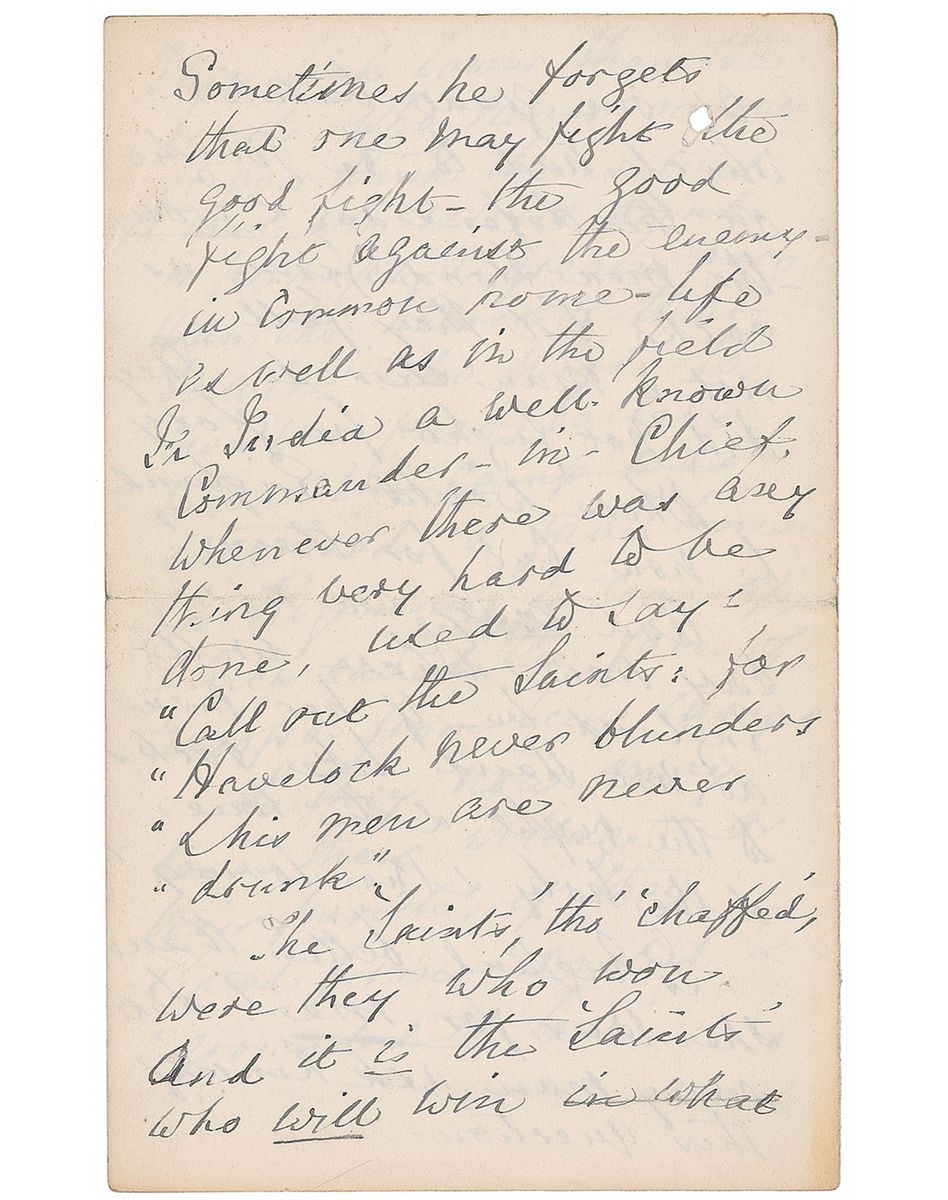 Sometimes he forgets
that one may fight the
good fight - the good
fight against the enemy -
in common home-life
as well as in the field
In India a well-known
Commander-in-Chief,
whenever there was any
thing very hard to be
done, used to say:
"Call out the Saints: for
"Havelock never blunders
"& his men are never
"drunk".
The 'Saints', tho' 'chaffed',
were they who won
And it is the 'Saints'
who will win in what